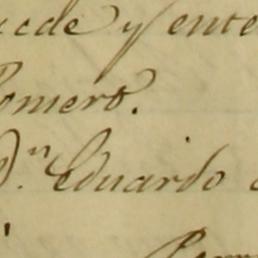 cede y ente
omero.
D.ⁿ Eduardo